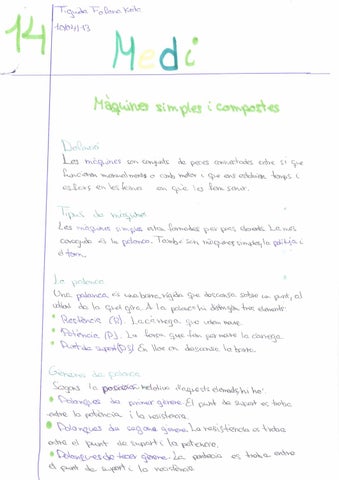 14
Medi
Màquines simples i compostes
Definició
Les màquines son conjunts de peces connectades entre si que
funcionen manualment o amb motor i que ens estalvien temps i
esforç en les feines en què les fem servir.
Tipus de màquines
Les màquines simples estan formades per pocs elements. La més
coneguda és la palanca. També son màquines simples, la politja i
el torn.
La palanca
Una palanca és una barra rígida que descansa sobre un punt, al
voltant de la qual gira. A la palanca hi distingim tres elements:
• Resistència (R). La càrrega que volem moure.
• Potència (P). La força que fem per moure la càrrega.
• Punt de suport (PS) En lloc on descansa la barra.
Gèneres de palanca
Segons la posició relativa d'aquests elements hi ha:
• Palanques de primer gènere. El punt de suport es troba
entre la potència i la resistència.
• Palanques de segon gènere. La resistencia es troba
entre el punt de suport i la potència.
• Palanques de tercer gènere. La potència es troba entre
el punt de suport i la resistència